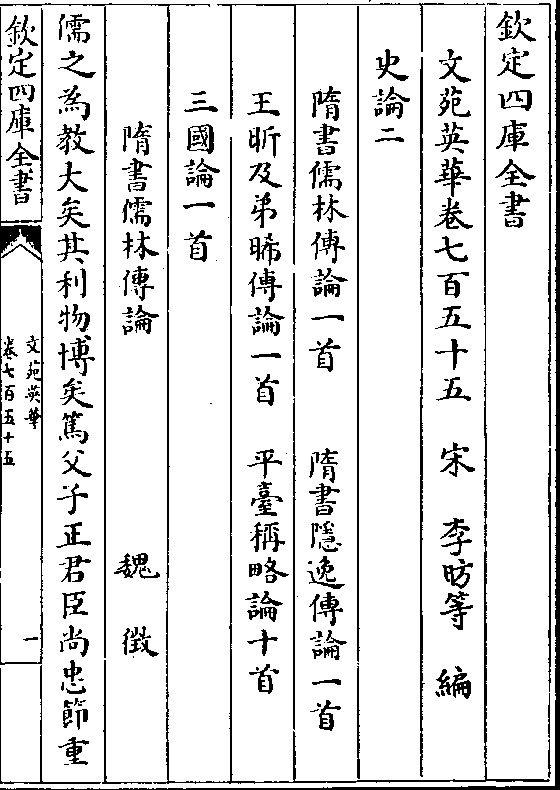 欽定四庫全書
文苑英華卷七百五十五　宋　李昉等　編
史論二
隋書儒林傳論一首　隋書隱逸傳論一首
王昕及弟晞傳論一首　平臺稱略論十首
三國論一首
隋書儒林傳論　魏　徵
儒之為教大矣其利物博矣篤父子正君臣尚忠節重
欽定四庫全書
文苑英華
卷七百五十五
一